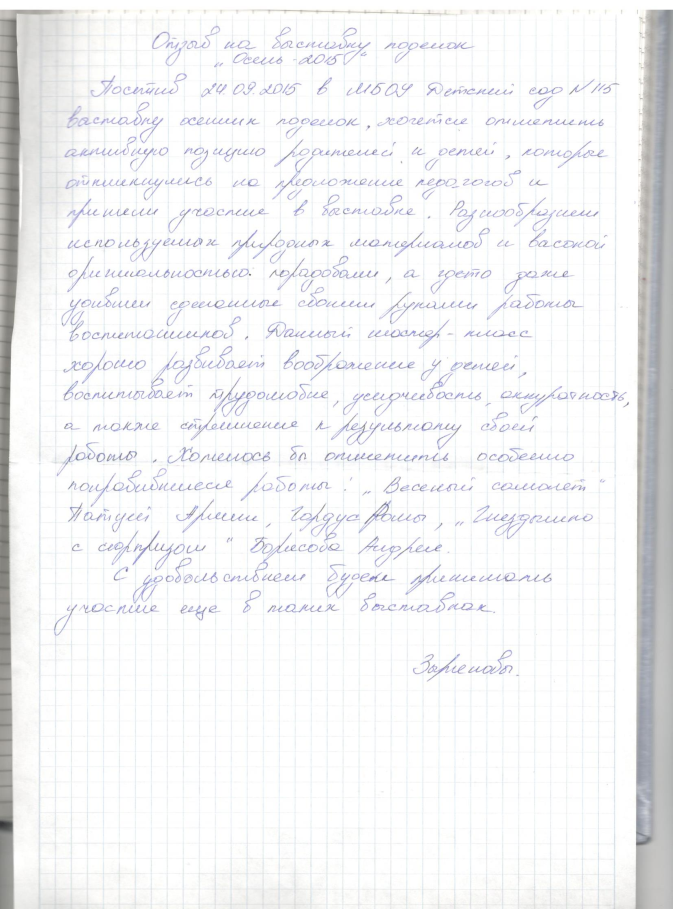 Отзыв на выставку поделок
„Осень-2015“
Посетив 24.09.2015 в МБОУ Детский сад №115
выставку осенних поделок, хочется отметить
активную позицию родителей и детей, которые
откликнулись на предложение педагогов и
приняли участие в выставке. Разнообразием
используемых природных материалов и высокой
оригинальностью порадовали, а где-то даже
удивили сделанные своими руками работы
воспитанников. Данный мастер-класс
хорошо развивает воображение у детей,
воспитывает трудолюбие, усидчивость, аккуратность,
а также стремление к результату своей
работы. Хотелось бы отметить особенно
понравившиеся работы: „Веселый самолет“
Арины, Гордус Ромы, „Гнездышко
с сюрпризом“ Борисова Андрея.
С удовольствием будем принимать
участие еще в таких выставках.